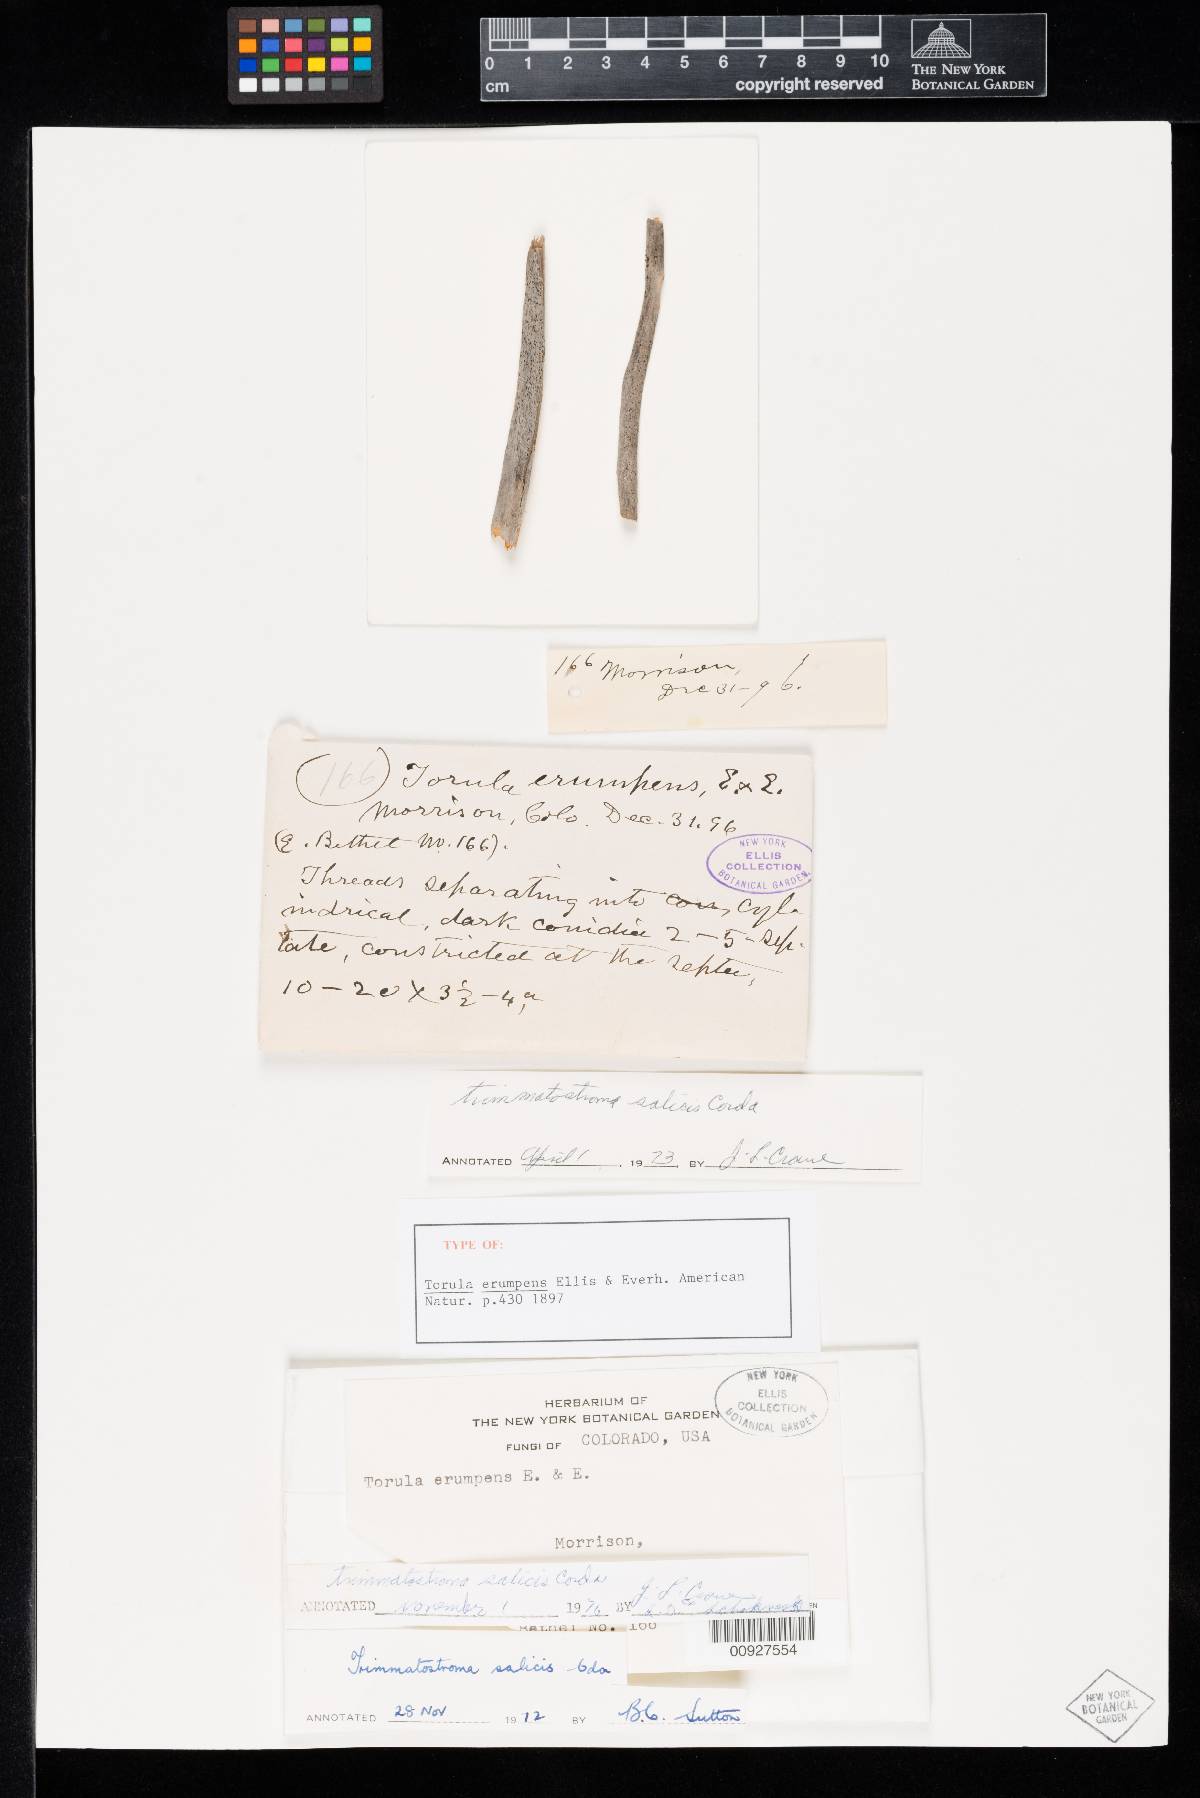 0 1 2 3 4 5 6 7 8 9 10
cm
copyright reserved
THE NEW YORK
BOTANICAL GARDEN
166 Morrison,
Dec 31-96.
(166) Torula erumpens, E. & E.
Morrison, Colo. Dec. 31. 96
(E. Bethel No. 166).
NEW YORK
ELLIS
COLLECTION
BOTANICAL GARDEN.
Threads separating into con, cyl-
indrical, dark conidia 2-5-sep-
tate, constricted at the septa,
10-20 X 3½-4
Trimmatostroma salicis Corda
ANNOTATED April 1, 1973. BY J. L. Crane
TYPE OF:
Torula erumpens Ellis & Everh. American
Natur. p.430 1897
NEW YORK
ELLIS
COLLECTION
BOTANICAL GARDEN
HERBARIUM OF
THE NEW YORK BOTANICAL GARDEN
FUNGI OF COLORADO, USA
Torula erumpens E. & E.
Morrison,
Trimmatostroma salicis Corda
ANNOTATED November 1 1976 BY J. L. Crane
No. 166
00927554
Trimmatostroma salicis Cda
ANNOTATED 28 Nov 1972 BY B.C. Sutton
NEW YORK
BOTANICAL
GARDEN